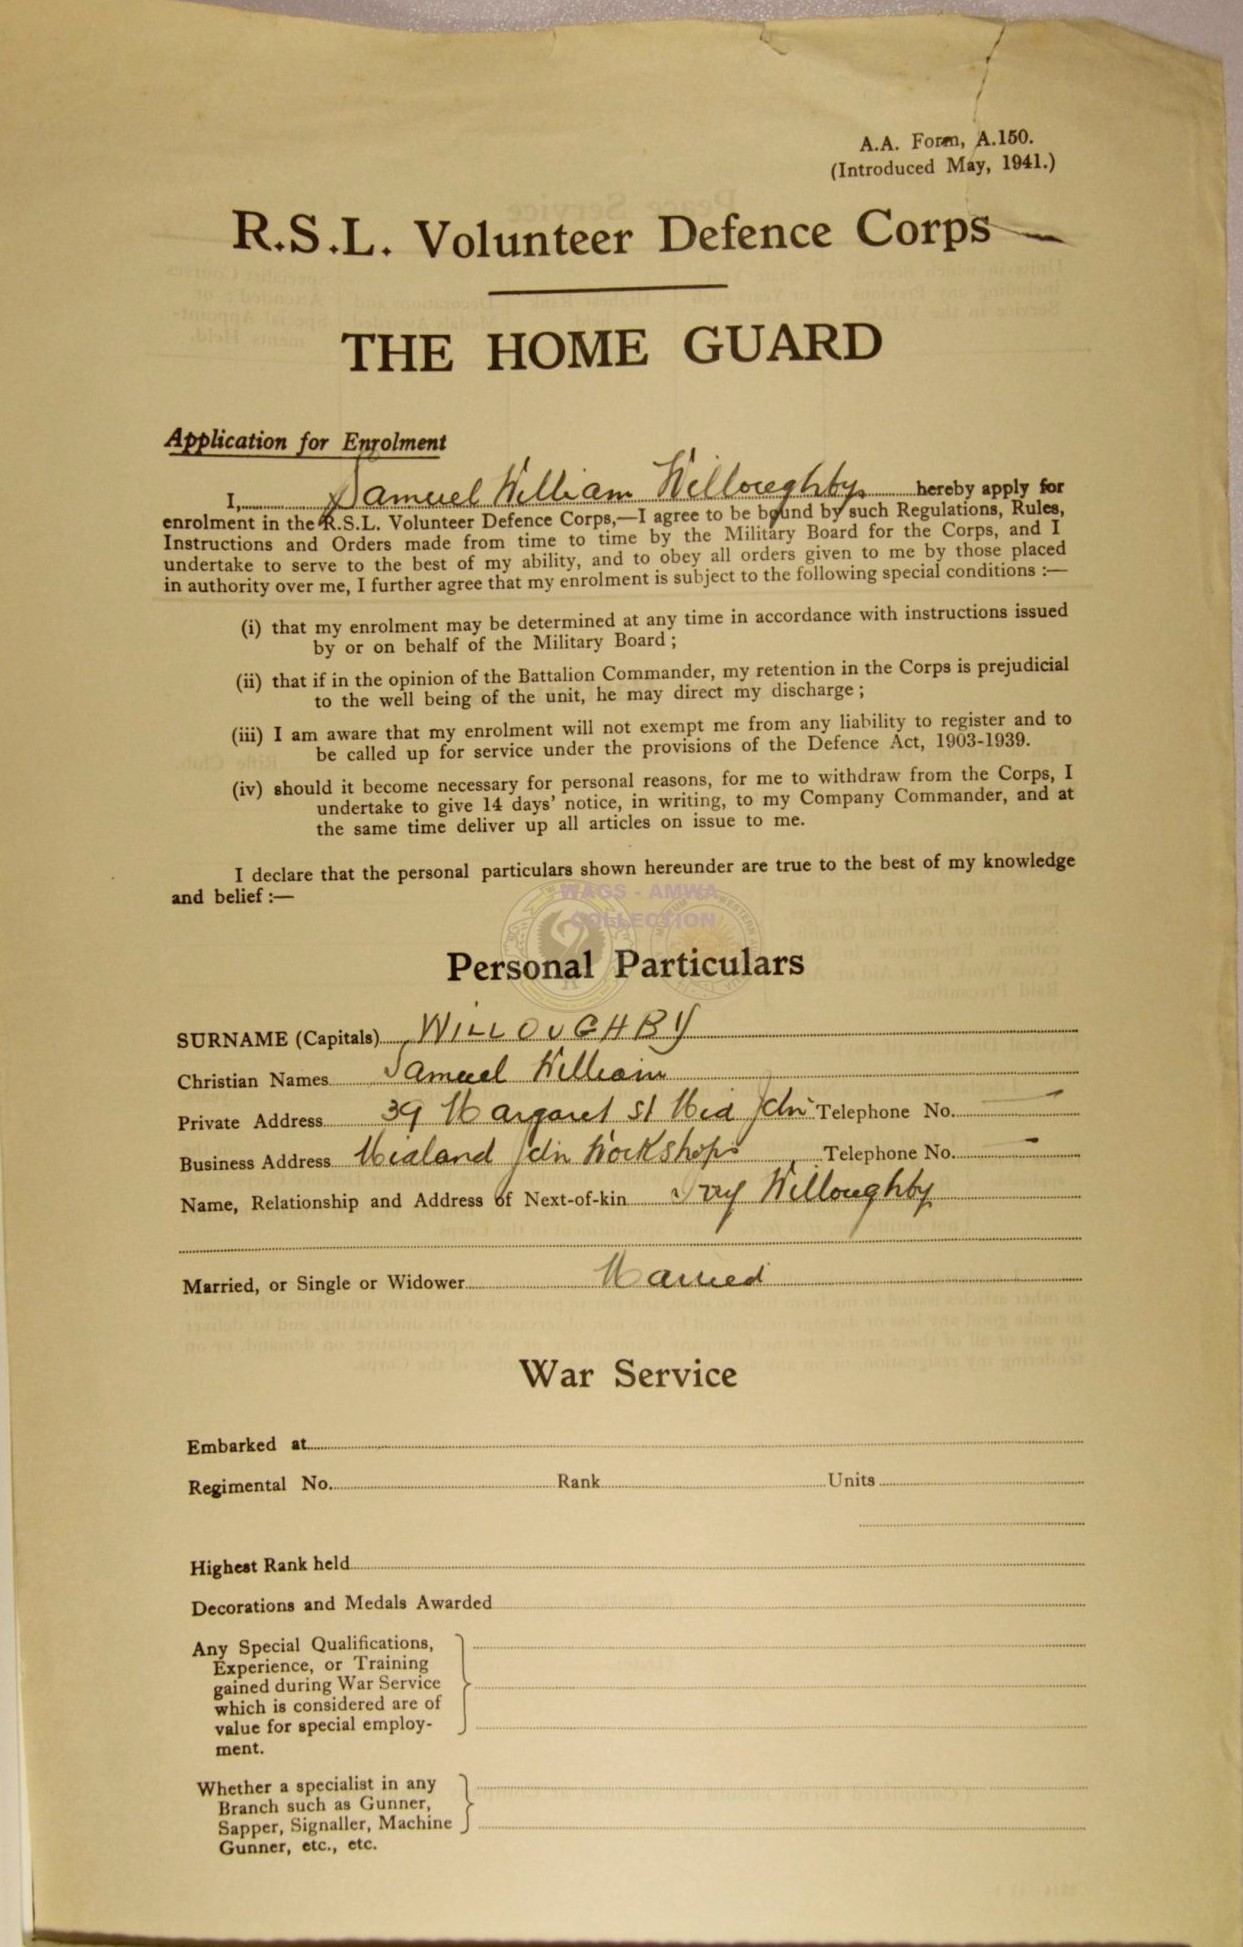 A.A. Form, A.150.
(Introduced May, 1941.)
R.S.L. Volunteer Defence Corps
THE HOME GUARD
Application for Enrolment
I, Samuel William Willoughby hereby apply for
enrolment in the R.S.L. Volunteer Defence Corps,—I agree to be bound by such Regulations, Rules,
Instructions and Orders made from time to time by the Military Board for the Corps, and I
undertake to serve to the best of my ability, and to obey all orders given to me by those placed
in authority over me, I further agree that my enrolment is subject to the following special conditions :—
(i) that my enrolment may be determined at any time in accordance with instructions issued
by or on behalf of the Military Board ;
(ii) that if in the opinion of the Battalion Commander, my retention in the Corps is prejudicial
to the well being of the unit, he may direct my discharge ;
(iii) I am aware that my enrolment will not exempt me from any liability to register and to
be called up for service under the provisions of the Defence Act, 1903-1939.
(iv) should it become necessary for personal reasons, for me to withdraw from the Corps, I
undertake to give 14 days' notice, in writing, to my Company Commander, and at
the same time deliver up all articles on issue to me.
I declare that the personal particulars shown hereunder are true to the best of my knowledge
and belief :—
WAGS - AMWA
COLLECTION
Personal Particulars
SURNAME (Capitals) WILLOUGHBY
Christian Names Samuel William
Private Address 39 Margaret St Mid Jctn Telephone No. —
Business Address Midland Jctn Workshops Telephone No. —
Name, Relationship and Address of Next-of-kin Ivy Willoughby
Married, or Single or Widower Married
War Service
Embarked at
Regimental No. Rank Units
Highest Rank held
Decorations and Medals Awarded
Any Special Qualifications,
Experience, or Training
gained during War Service
which is considered are of
value for special employ-
ment.
Whether a specialist in any
Branch such as Gunner,
Sapper, Signaller, Machine
Gunner, etc., etc.